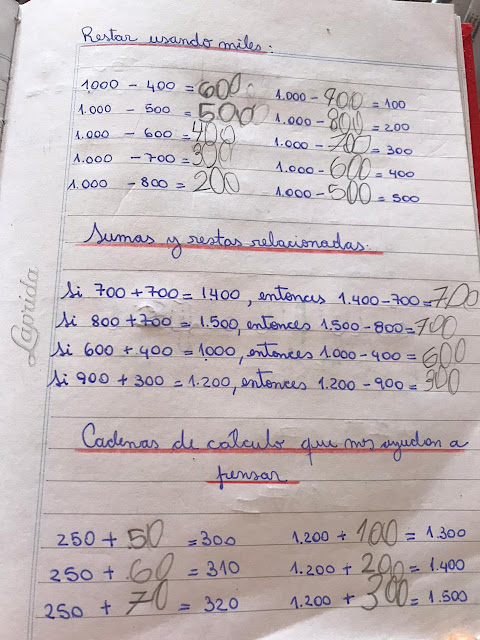 Restar usando miles:
1.000 - 400 = 600 1.000 - 900 = 100
1.000 - 500 = 500 1.000 - 800 = 200
1.000 - 600 = 400 1.000 - 700 = 300
1.000 - 700 = 300 1.000 - 600 = 400
1.000 - 800 = 200 1.000 - 500 = 500
Sumas y restas relacionadas.
Si 700 + 700 = 1400, entonces 1.400 - 700 = 700
Si 800 + 700 = 1.500, entonces 1.500 - 800 = 700
Si 600 + 400 = 1000, entonces 1.000 - 400 = 600
Si 900 + 300 = 1.200, entonces 1.200 - 900 = 300
Cadenas de calculo que nos ayudan a
pensar
250 + 50 = 300 1.200 + 100 = 1.300
250 + 60 = 310 1.200 + 200 = 1.400
250 + 70 = 320 1.200 + 300 = 1.500
Laprida